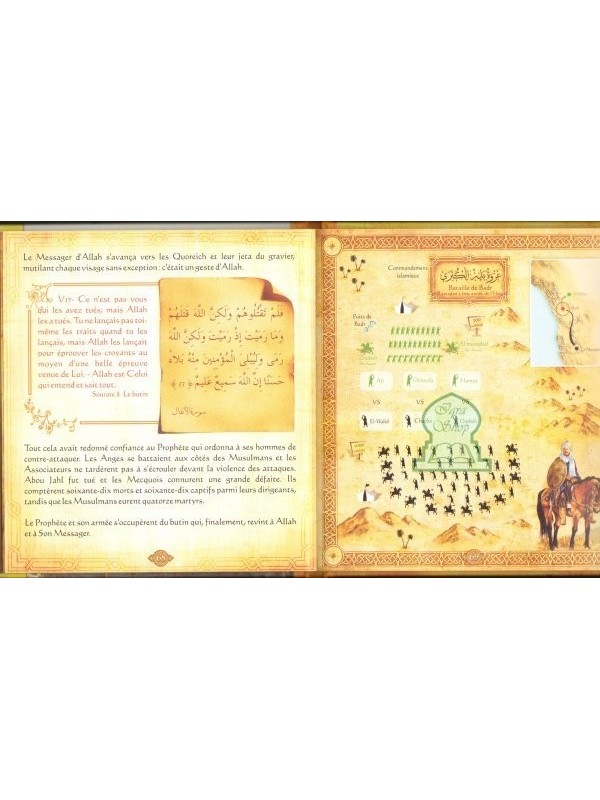 Le Messager d'Allah s'avança vers les Quoreich et leur jeta du gravier,
mutilant chaque visage sans exception : c'était un geste d'Allah.
V17- Ce n'est pas vous
qui les avez tués; mais Allah
les a tués. Tu ne lançais pas toi-
même les traits quand tu les
lançais, mais Allah les lançait
pour éprouver les croyants au
moyen d'une belle épreuve
venue de Lui. - Allah est Celui
qui entend et sait tout.
Sourate 8 Le butin
فَلَمْ تَقْتُلُوهُمْ وَلَكِنَّ اللَّهَ قَتَلَهُمْ
وَمَا رَمَيْتَ إِذْ رَمَيْتَ وَلَكِنَّ اللَّهَ
رَمَى وَلِيُبْلِيَ الْمُؤْمِنِينَ مِنْهُ بَلَاءً
حَسَنًا إِنَّ اللَّهَ سَمِيعٌ عَلِيمٌ ﴿١٧﴾
سورة الأنفال
Tout cela avait redonné confiance au Prophète qui ordonna à ses hommes de
contre-attaquer. Les Anges se battaient aux côtés des Musulmans et les
Associateurs ne tardèrent pas à s'écrouler devant la violence des attaques.
Abou Jahl fut tué et les Mecquois connurent une grande défaite. Ils
comptèrent soixante-dix morts et soixante-dix captifs parmi leurs dirigeants,
tandis que les Musulmans eurent quatorze martyrs.
Le Prophète et son armée s'occupèrent du butin qui, finalement, revint à Allah
et à Son Messager.
68
Commandement
islamique
غزوة بدر الكبرى
Bataille de Badr
Puits de
Badr
Ali
Hamza
VS
VS
VS
El-Walid
Iqra
Shop
69